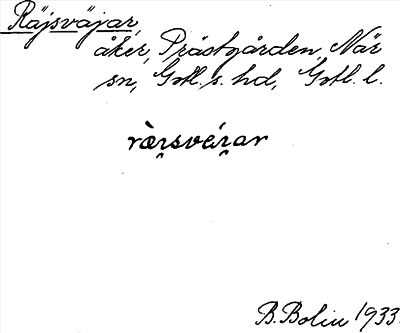 Räjsväjar,
åker, Prästgården, När
sn, Gotl. s. hd, Gotl. l.
ræ̀i̯svéi̯ar
B. Bolin 1933.